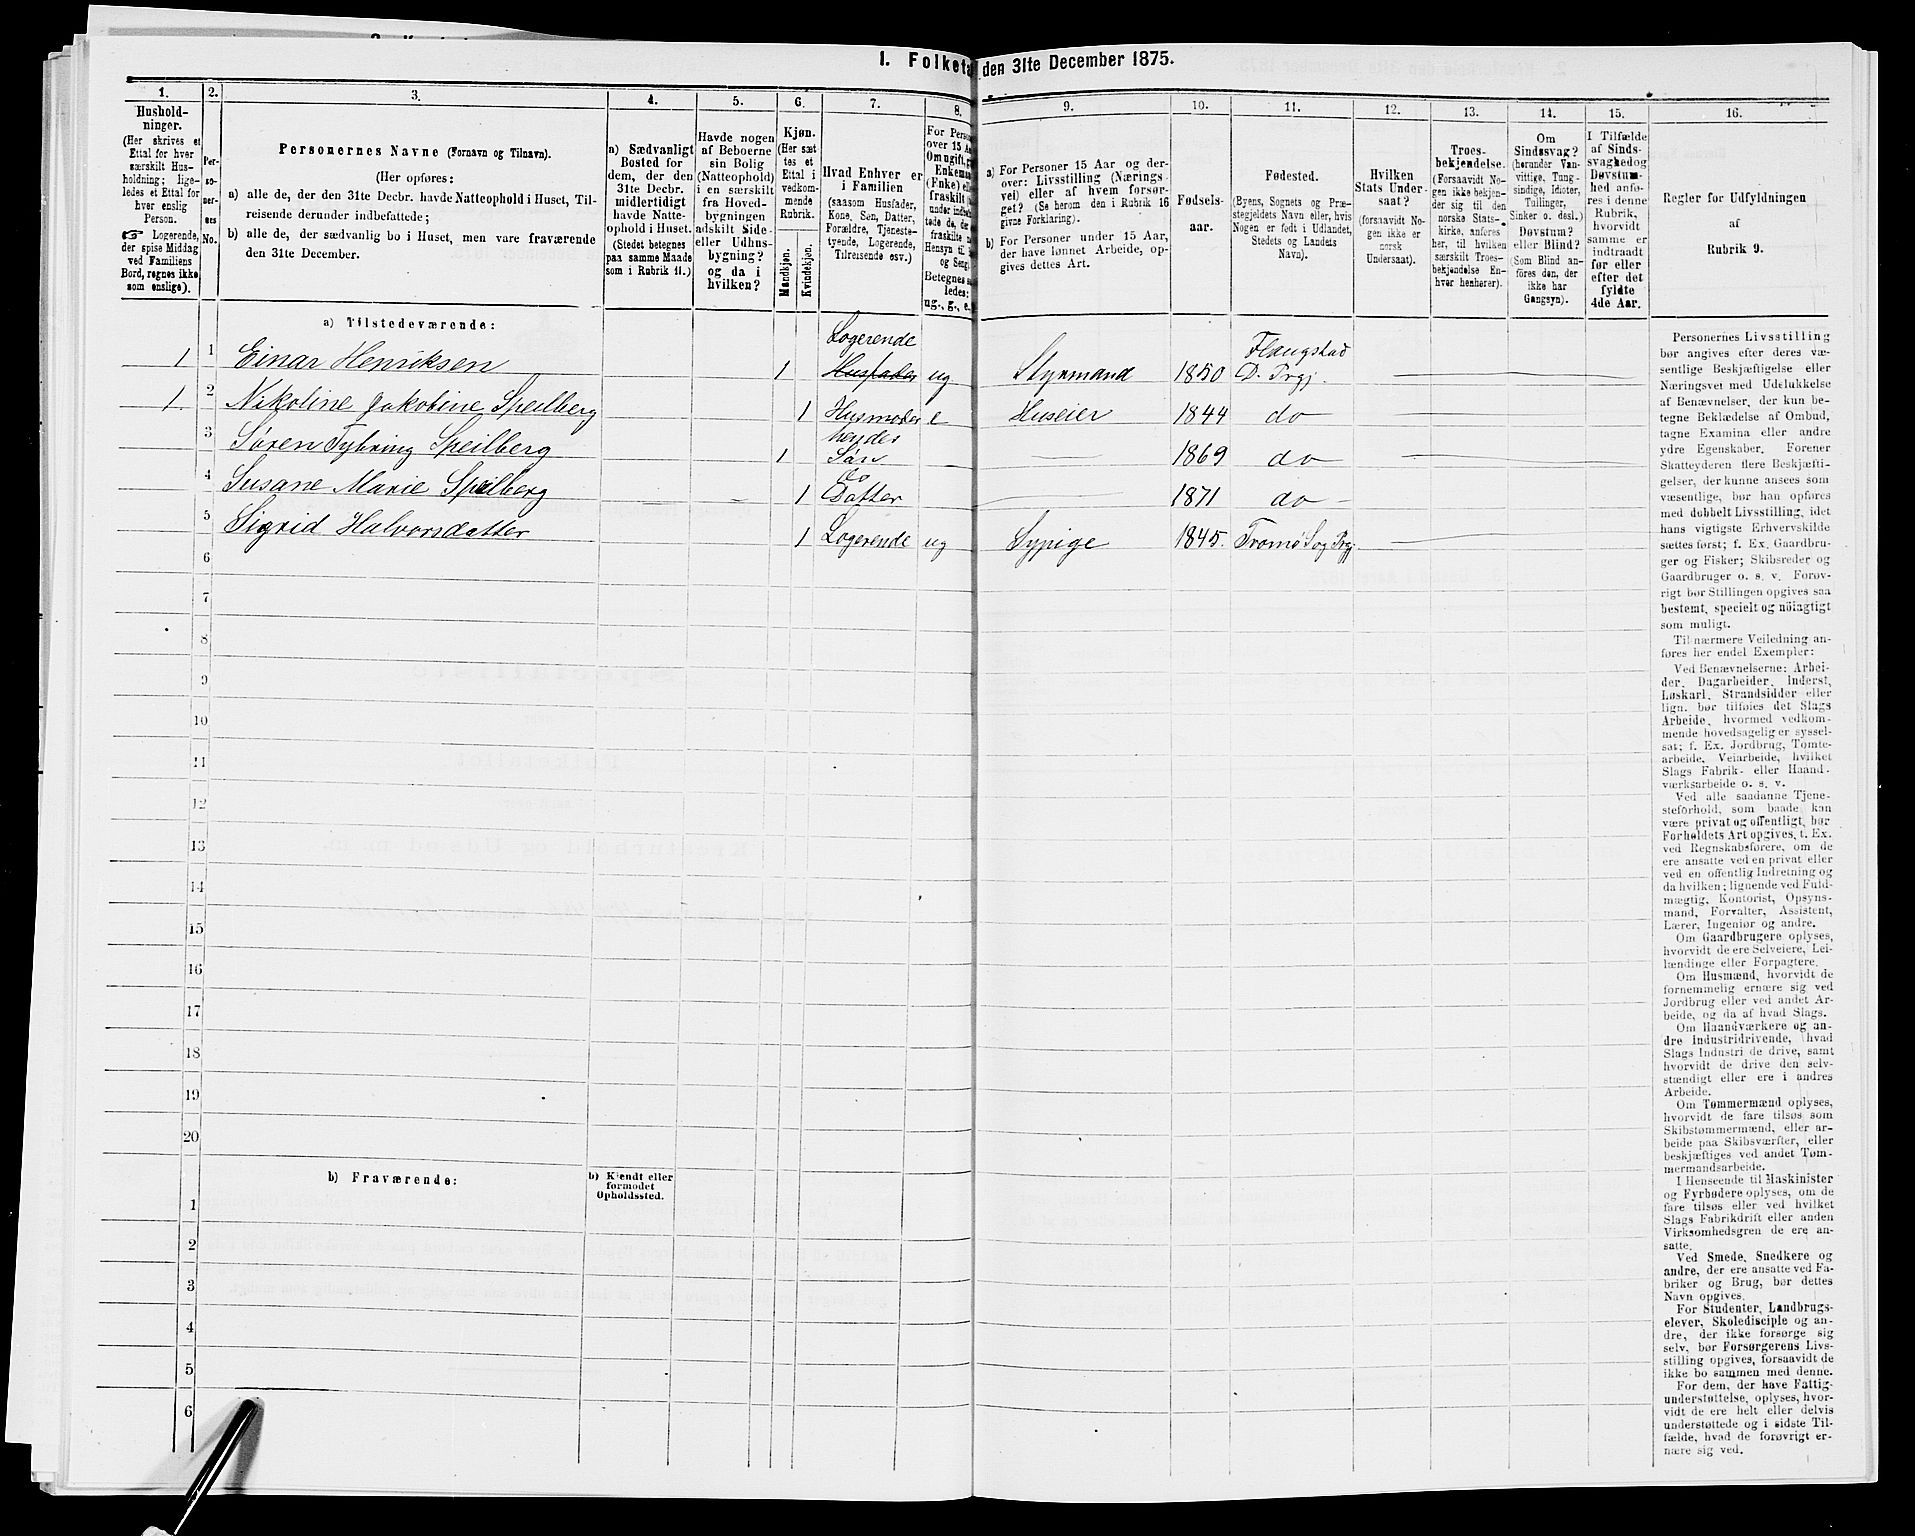 1. Folketa den 31te December 1875.
1.
Hushold-
ninger.
(Her skrives et
Ettal for hver
særskilt Hus-
holdning; lige-
ledes et Ettal for
hver enslig
Person.
☞ Logerende,
der spise Middag
ved Familiens
Bord, regnes ikke
som enslige).
2.
Per-
so-
ner-
nes
No.
3.
Personernes Navne (Fornavn og Tilnavn).
(Her opføres:
a) alle de, der den 31te Decbr. havde Natteophold i Huset, Til-
reisende derunder indbefattede;
b) alle de, der sædvanlig bo i Huset, men vare fraværende
den 31te December.
4.
a) Sædvanligt
Bosted for
dem, der den
31te Decbr.
midlertidigt
havde Natte-
ophold i Huset.
(Stedet betegnes
paa samme Maade
som i Rubrik 11.)
5.
Havde nogen
af Beboerne
sin Bolig
(Natteophold)
i en særskilt
fra Hoved-
bygningen
adskilt Side-
eller Udhus-
bygning?
og da i
hvilken?
6.
Kjøn.
(Her sæt-
tes et
Ettal i
vedkom-
mende
Rubrik.
Mandkjøn.
Kvindekjøn.
7.
Hvad Enhver er
i Familien
(saasom Husfader,
Kone, Søn, Datter,
Forældre, Tjeneste-
tyende, Logerende,
Tilreisende osv.)
8.
For Perso
over 15 Aa
Om ugift, g
Enkem
(Enke) ell
fraskilt
under indb
tede de, d
fraskilte
Hensyn til
og Seng.
Betegnes s
ledes:
ug., g., e.
9.
a) For Personer 15 Aar og der-
over: Livsstilling (Nærings-
vei) eller af hvem forsør-
get? (Se herom den i Rubrik 16
givne Forklaring).
b) For Personer under 15 Aar,
der have lønnet Arbeide, op-
gives dettes Art.
10.
Fødsels-
aar.
11.
Fødested.
(Byens, Sognets og Præ-
stegjeldets Navn eller, hvis
Nogen er født i Udlandet,
Stedets og Landets
Navn).
12.
Hvilken
Stats Under-
saat?
(forsaavidt No-
gen ikke er
norsk
Undersaat).
13.
Troes-
bekjendelse.
(Forsaavidt No-
gen ikke bekjen-
der sig til den
norske Stats-
kirke, anføres
her, til hvilken
særskilt Troes-
bekjendelse En-
hver henhører).
14.
Om
Sindssvag?
(herunder Van-
vittige, Tung-
sindige, Idioter,
Tullinger,
Sinker o. desl.)
Døvstum?
eller Blind?
(Som Blind an-
føres den, der
ikke har
Gangsyn).
15.
I Tilfælde
af Sinds-
svaghed og
Døvstum-
hed anfø-
res i denne
Rubrik,
hvorvidt
samme er
indtraadt
før eller
efter det
fyldte
4de Aar.
16.
Regler for Udfyldningen
af
Rubrik 9.
a) Tilstedeværende:
Logerende
1 1 Einar Henriksen 1 Husfader ug Styrmand 1850 Flaugstad D. Prgj.
1. 2 Nikoline Jakobine Speilberg 1 Husmoder e Huseier 1844 do
3 Søren Tybring Speilberg 1 hendes Søn 1869 do
4 Susane Marie Speilberg 1 do Datter 1871 do
5 Sigrid Halvorsdatter 1 Logerende ug Sypige 1845. Tromø Sog Prgj.
6
7
8
9
10
11
12
13
14
15
16
17
18
19
20
b) Fraværende:
b) Kjendt eller
formodet
Opholdssted.
1
2
3
4
5
6
Personernes Livsstilling
bør angives efter deres væ-
sentlige Beskjæftigelse eller
Næringsvei med Udelukkelse
af Benævnelser, der kun be-
tegne Beklædelse af Ombud,
tagne Examina eller andre
ydre Egenskaber. Forener
Skatteyderen flere Beskjæfti-
gelser, der kunne ansees som
væsentlige, bør han opføres
med dobbelt Livsstilling, idet
hans vigtigste Erhvervskilde
sættes først; f. Ex. Gaardbru-
ger og Fisker; Skibsreder og
Gaardbruger o. s. v. Forøv-
rigt bør Stillingen opgives saa
bestemt, specielt og nöiagtigt
som muligt.
Til nærmere Veiledning an-
føres her endel Exempler:
Ved Benævnelserne: Arbei-
der, Dagarbeider, Inderst,
Løskarl, Strandsidder eller
lign. bør tilføies det Slags
Arbeide, hvormed vedkom-
mende hovedsagelig er syssel-
sat; f. Ex. Jordbrug, Tomte-
arbeide, Veiarbeide, hvilket
Slags Fabrik- eller Haand-
værksarbeide o. s. v.
Ved alle saadanne Tjene-
steforhold, som baade kan
være privat og offentligt, bør
Forholdets Art opgives, t. Ex.
ved Regnskabsførere, om de
ere ansatte ved en privat eller
ved en offentlig Indretning og
da hvilken; lignende ved Fuld-
mægtig, Kontorist, Opsyns-
mand, Forvalter, Assistent,
Lærer, Ingeniør og andre.
Om Gaardbrugere oplyses,
hvorvidt de ere Selveiere, Lei-
lændinge eller Forpagtere.
Om Husmænd, hvorvidt de
fornemmelig ernære sig ved
Jordbrug eller ved andet Ar-
beide, og da af hvad Slags.
Om Haandværkere og an-
dre Industridrivende, hvad
Slags Industri de drive, samt
hvorvidt de drive den selv-
stændigt eller ere i andres
Arbeide.
Om Tømmermænd oplyses,
hvorvidt de fare tilsøs som
Skibstømmermænd, eller ar-
beide paa Skibsværfter, eller
beskjæftiges ved andet Tøm-
mermandsarbeide.
I Henseende til Maskinister
og Fyrbødere oplyses, om de
fare tilsøs eller ved hvilket
Slags Fabrikdrift eller anden
Virksomhedsgren de ere an-
satte.
Ved Smede, Snedkere og
andre, der ere ansatte ved Fa-
briker og Brug, bør dettes
Navn opgives.
For Studenter, Landbrugs-
elever, Skoledisciple og an-
dre, der ikke forsørge sig
selv, bør Forsørgerens Livs-
stilling opgives, forsaavidt de
ikke bo sammen med denne.
For dem, der have Fattig-
understøttelse, oplyses, hvor-
vidt de ere helt eller delvis
understøttede og i sidste Til-
fælde, hvad de forøvrigt er-
nære sig ved.